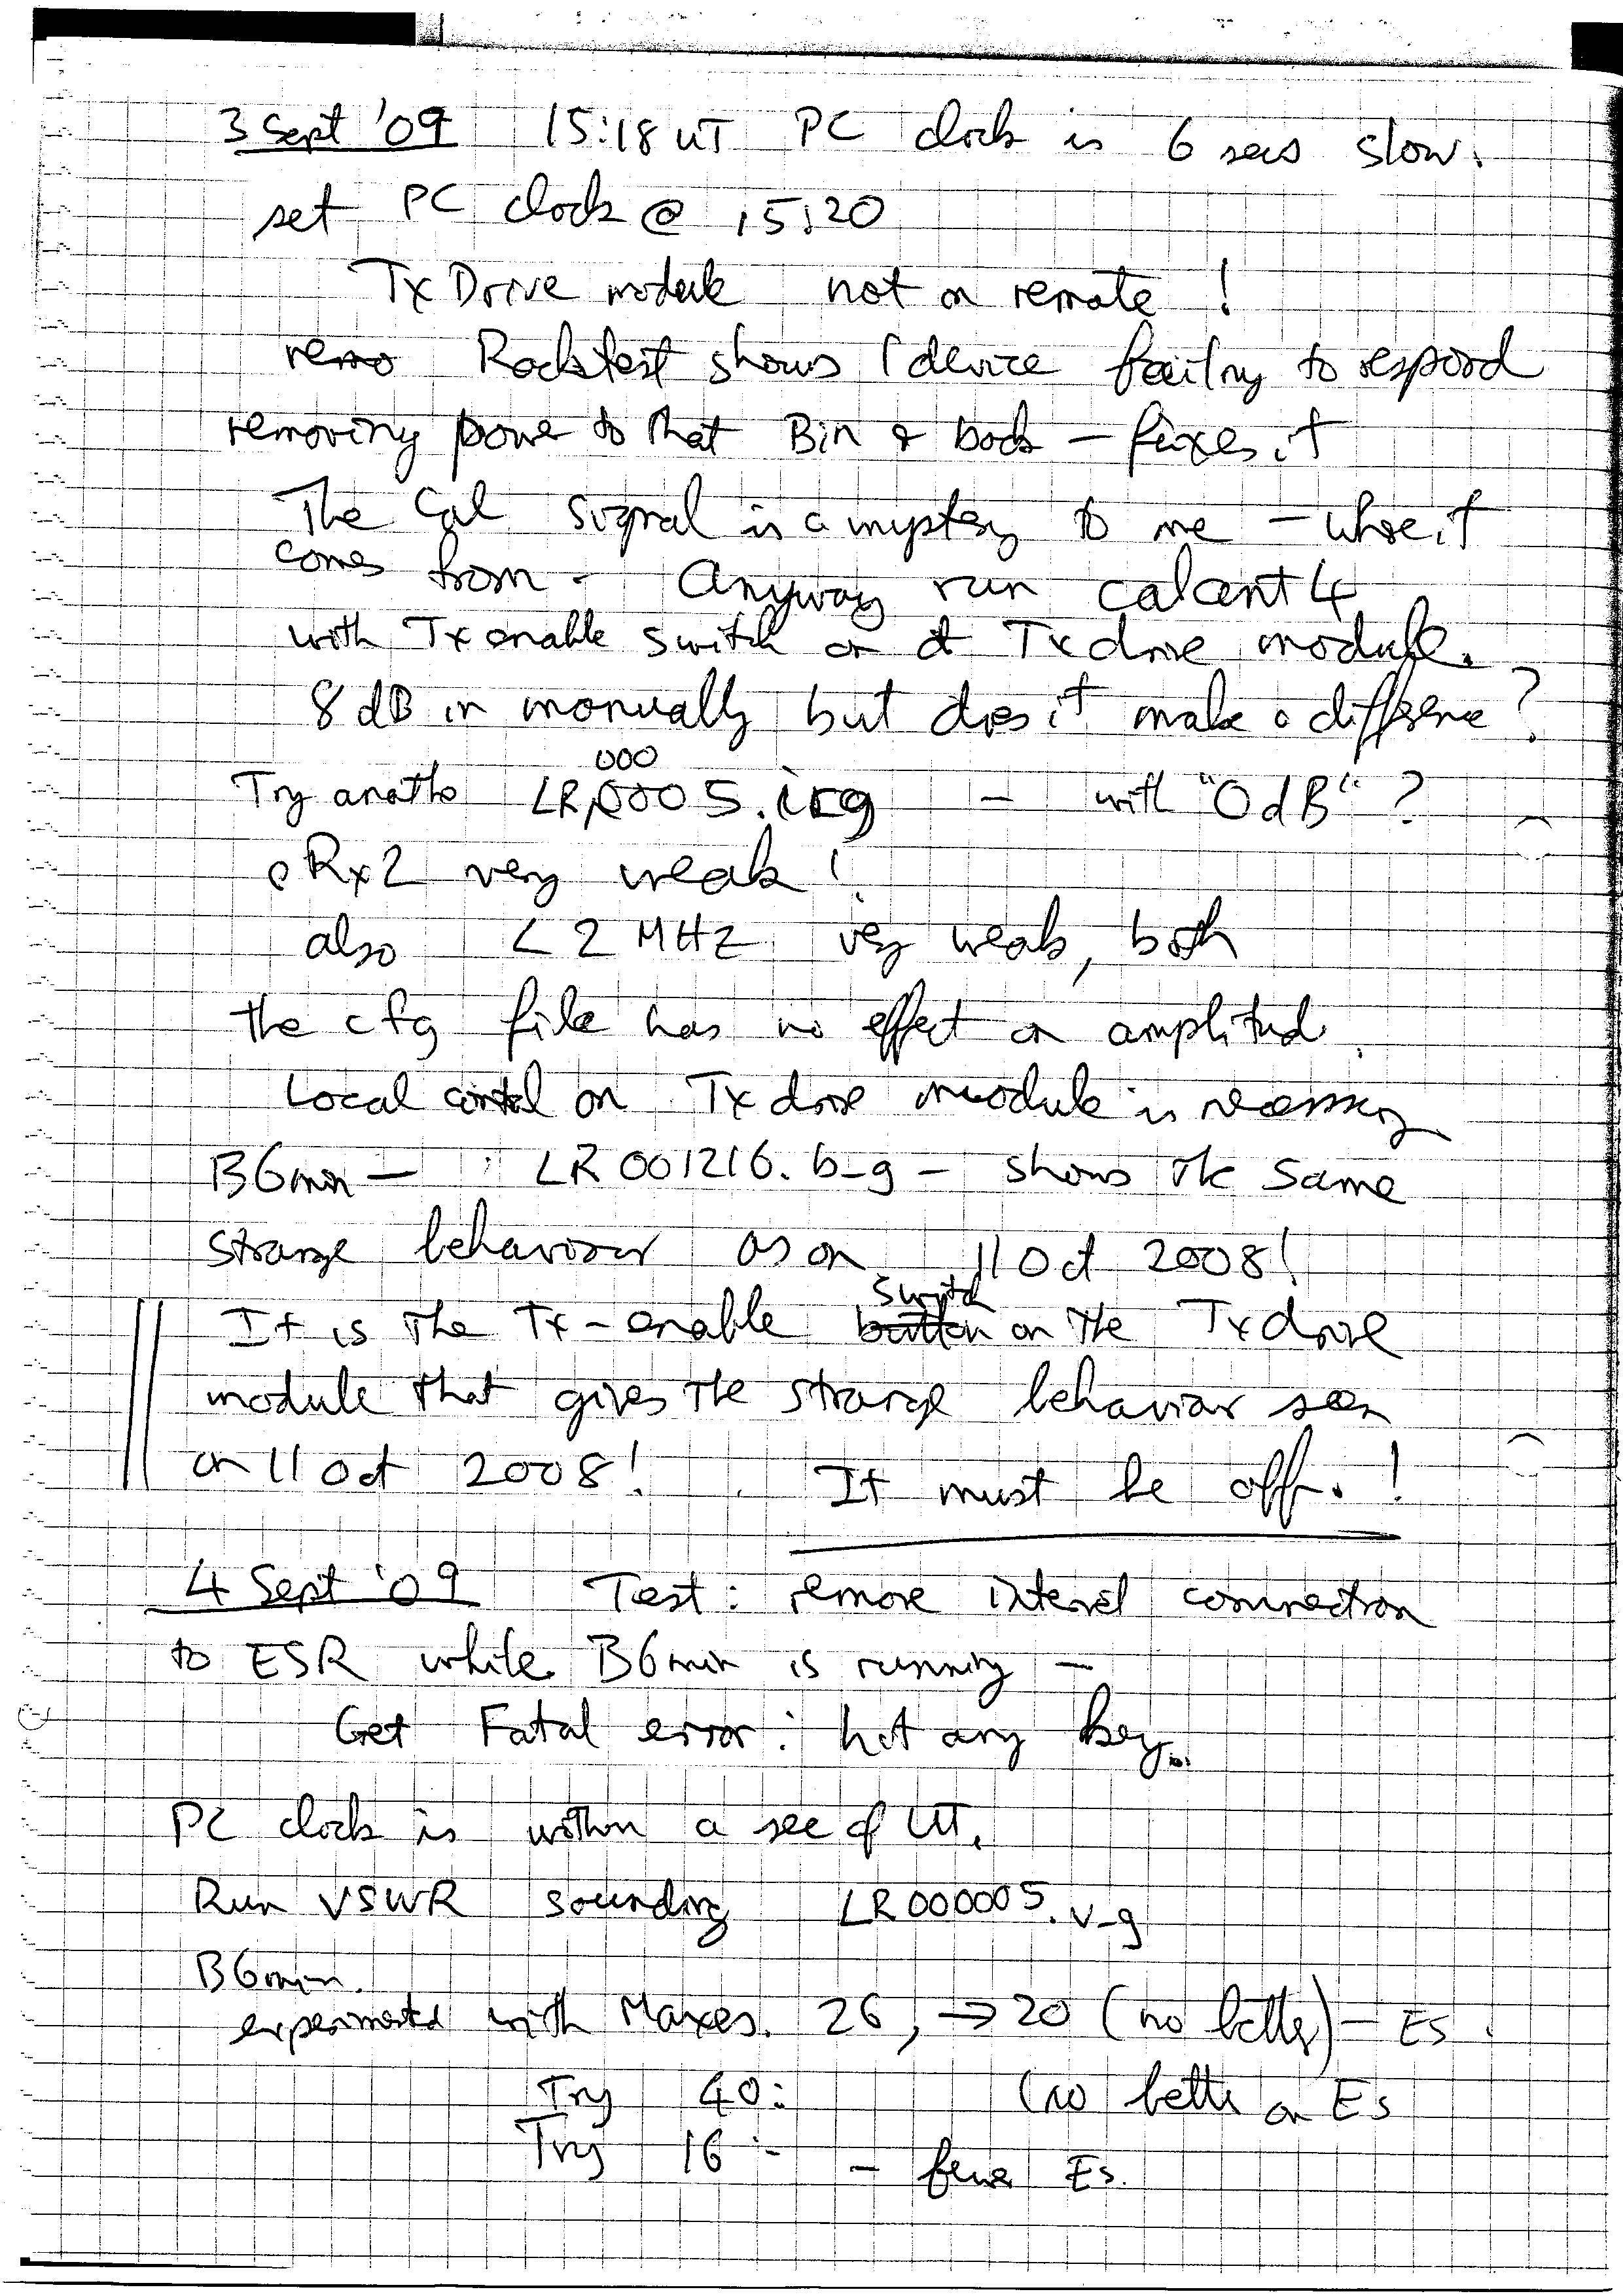 3 Sept '09 15:18 UT PC clock is 6 secs slow.
set PC clock @ 15:20
Tx Drive module not on remote !
remo Racktest shows 1 device failing to respond
removing power to that Bin & back – fixes it
The Cal signal is a mystery to me – where it
comes from - Anyway run calcent4
with Tx enable switch on at Tx drive module.
8 dB in manually but does it make a difference ?
000
Try another LR0005.irg – with "0dB" ?
Rx2 very weak !
also < 2 MHz very weak, both
the cfg file has no effect on amplitud.
Local control on Tx drive module is necessary
B6min – LR001216.b_g – shows the same
strange behaviour as on 11 Oct 2008!
switch
It is the Tx-enable button on the Tx drive
module that gives the strange behaviour seen
on 11 Oct 2008! It must be off. !
4 Sept '09 Test: remove internet connection
to ESR while B6min is running –
Get Fatal error: hit any key...
PC clock is within a sec of UT.
Run VSWR sounding LR000005.v_g
B6min.
experimented with Maxes. 26, → 20 (no better) – Es.
Try 40: (no better on Es
Try 16 :- – fewer Es.